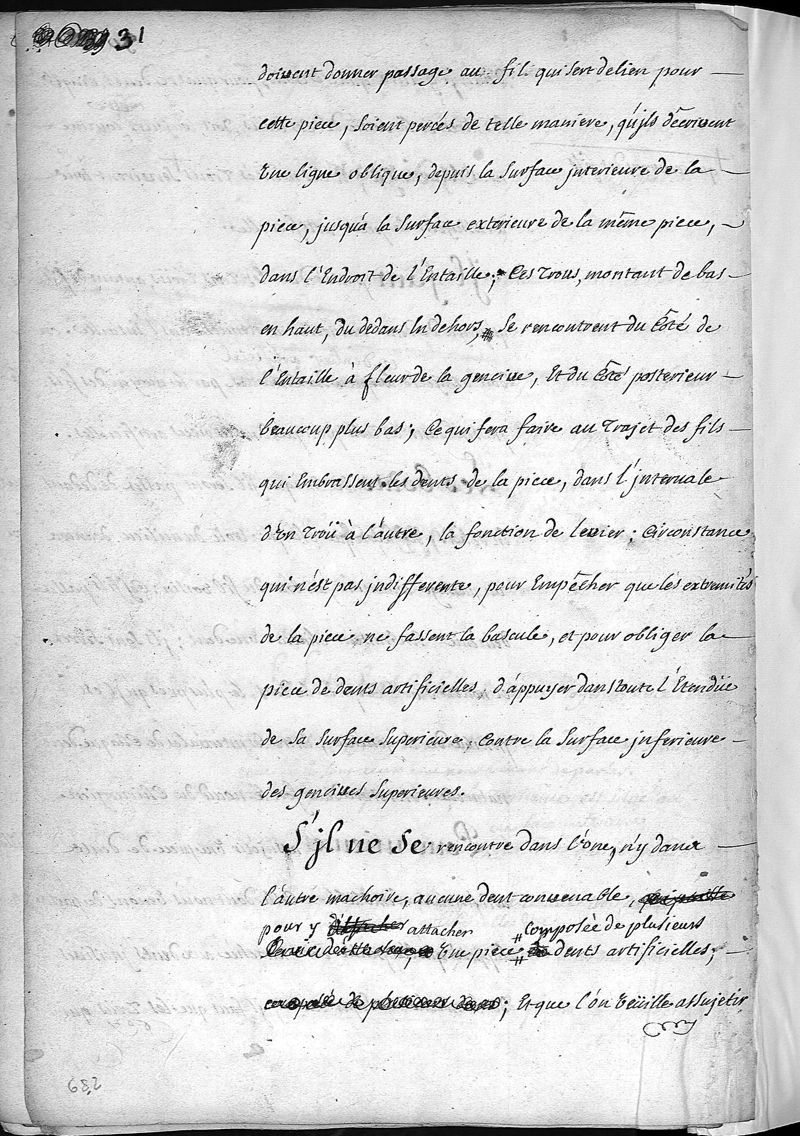 31
doivent donner passage au fil qui sert de lien pour —
cette piece, soient percés de telle maniere, qu'jls décrivent
Une ligne oblique, depuis la Surface jnterieure de la —
piece, jusqu'à la Surface exterieure de la même piece, —
dans l'Endroit de l'Entaille; Ces Trous, montant de bas —
en haut, du dedans En dehors, Se rencontrent du Côté de
l'Entaille à fleur de la gencive, Et du Côté posterieur —
beaucoup plus bas; Ce qui fera faire au Trajet des fils —
qui Embrassent les dents de la piece, dans l'jntervale —
d'Un Troü à l'autre, la fonction de levier; Circonstance
qui n'est pas jndifferente, pour Empêcher que les extremités
de la piece ne fassent la bascule, et pour obliger la —
piece de dents artificielles, d'appuyer dans toute l'Etendüe
de sa Surface Superieure, Contre la Surface jnferieure —
des gencives Superieures.
S'jl ne Se rencontre dans l'Une, n'y dans —
l'autre machoire, aucune dent convenable,
pour y attacher composée de plusieurs
Une piece # dents artificielles; —
; Et que l'on Veüille assujetir
239